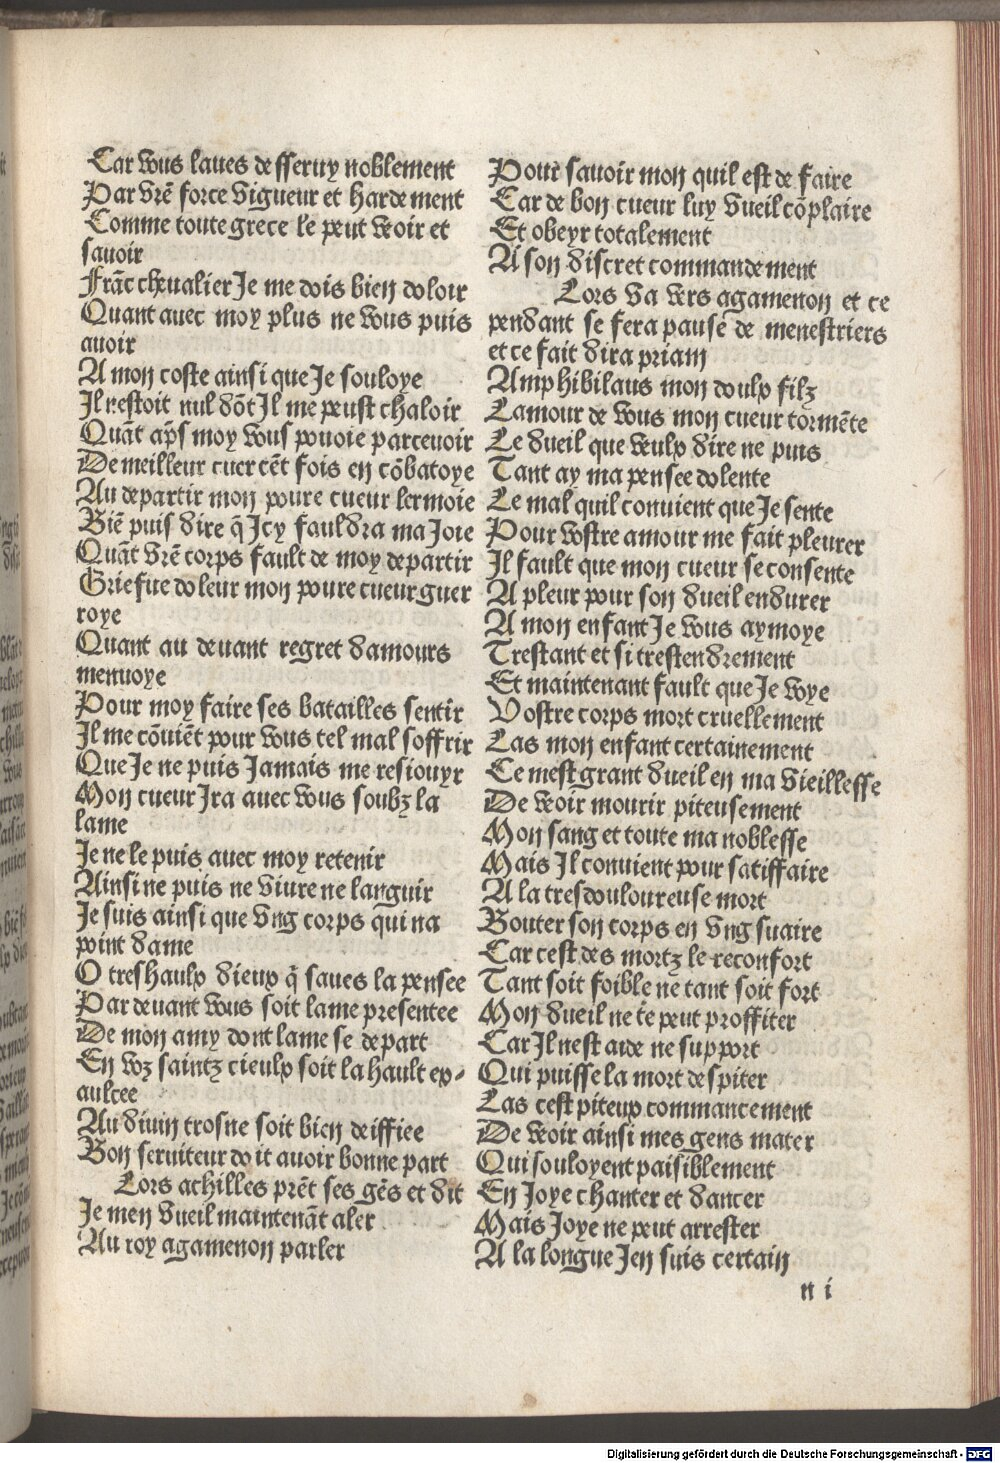 Car vous laues de sseruy noblement
Par vrē force vigueur et harde ment
Comme toute grece le peut veoir et
sauoir
Frāc cheualier Je me dois bien doloir
Quant auec moy plus ne vous puis
auoir
A mon coste ainsi que Je souloye
Il nestoit nul dōt Il me peust chaloir
Quāt aps moy vous pouoie parceuoir
De meilleur cuer cēt fois en cōbatoye
Au departir mon poure cueur lermoie
Biē puis dire q̄ Icy fauldra ma Joie
Quāt vrē corps fault de moy departir
Griefue doleur mon poure cueur guer
roye
Quant au deuant regret damours
menuoye
Pour moy faire ses batailles sentir
Il me cōuiēt pour vous tel mal soffrir
Que Je ne puis Jamais me resiouyr
Mon cueur Ira auec vous soubz la
lame
Je ne le puis auec moy retenir
Ainsi ne puis ne viure ne languir
Je suis ainsi que vng corps qui na
point dame
O treshaulx dieux q̄ saues la pensee
Par deuant vous soit lame presentee
De mon amy dont lame se depart
En voz saintz cieulx soit la hault ex-
aulcee
Au diuin trosne soit bien deiffiee
Bon seruiteur doit auoir bonne part
Lors achilles prēt ses gēs et dit
Je men vueil maintenāt aler
Au roy agamenon parler
Pour sauoir mon quil est de faire
Car de bon cueur luy vueil cōplaire
Et obeyr totalement
A son discret commandement
Lors va vers agamenon et ce
pendant se fera pause de menestriers
et ce fait dira priam
Amphibilaus mon doulx filz
Lamour de vous mon cueur tormēte
Le dueil que veulx dire ne puis
Tant ay ma pensee dolente
Le mal quil conuient que Je sente
Pour vostre amour me fait pleurer
Il fault que mon cueur se consente
A pleur pour son dueil endurer
A mon enfant Je vous aymoye
Trestant et si trestendrement
Et maintenant fault que Je voye
Vostre corps mort cruellement
Las mon enfant certainement
Ce mest grant dueil en ma vieillesse
De veoir mourir piteusement
Mon sang et toute ma noblesse
Mais Il conuient pour satiffaire
A la tresdouloureuse mort
Bouter son corps en vng suaire
Car cest des mortz le reconfort
Tant soit foible ne tant soit fort
Mon dueil ne te peut proffiter
Car Il nest aide ne support
Qui puisse la mort despiter
Las cest piteux commancement
De veoir ainsi mes gens mater
Qui souloyent paisiblement
En Joye chanter et dancer
Mais Joye ne peut arrester
A la longue Jen suis certain
n i
Digitalisierung gefördert durch die Deutsche Forschungsgemeinschaft - DFG